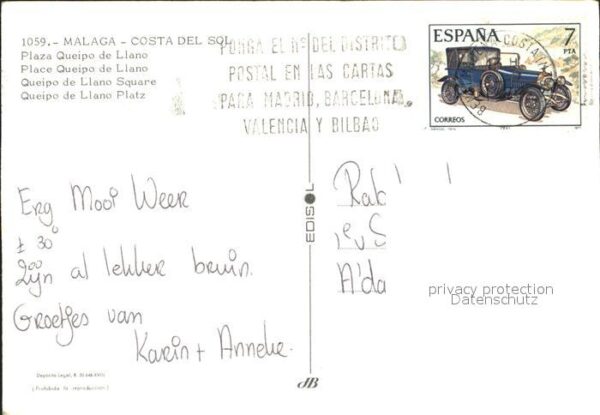 1059.- MALAGA - COSTA DEL SOL
Plaza Queipo de Llano
Place Queipo de Llano
Queipo de Llano Square
Queipo de Llano Platz
PONGA EL Nº DEL DISTRITO
POSTAL EN LAS CARTAS
PARA MADRID, BARCELONA,
VALENCIA Y BILBAO
ESPAÑA 7
PTA
CORREOS
Erg Mooi Weer
± 30°
Zijn al lekker bruin.
Groetjes van
Karin + Anneke.
EDISOL
A'da
privacy protection
Datenschutz
Depósito Legal, B.
(Prohibida la reproducción)